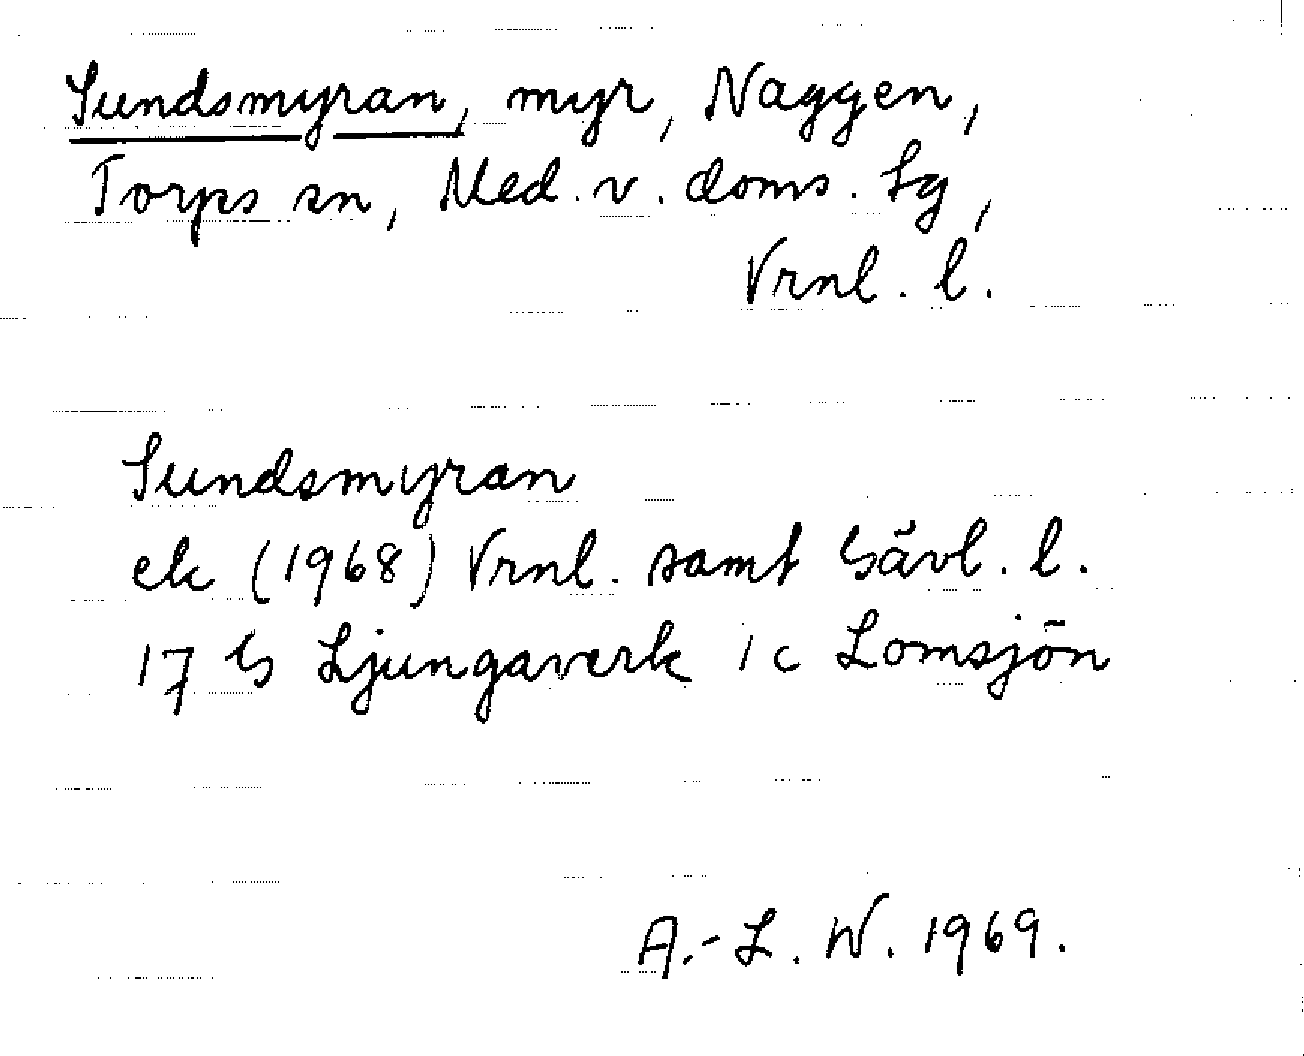 Sundsmyran, myr, Naggen,
Torps sn, Med. v. doms. tg,
Vrnl. l.
Sundsmyran
ek (1968) Vrnl. samt Gävl. l.
17 G Ljungaverk 1 c Lomsjön
A.-L. W. 1969.